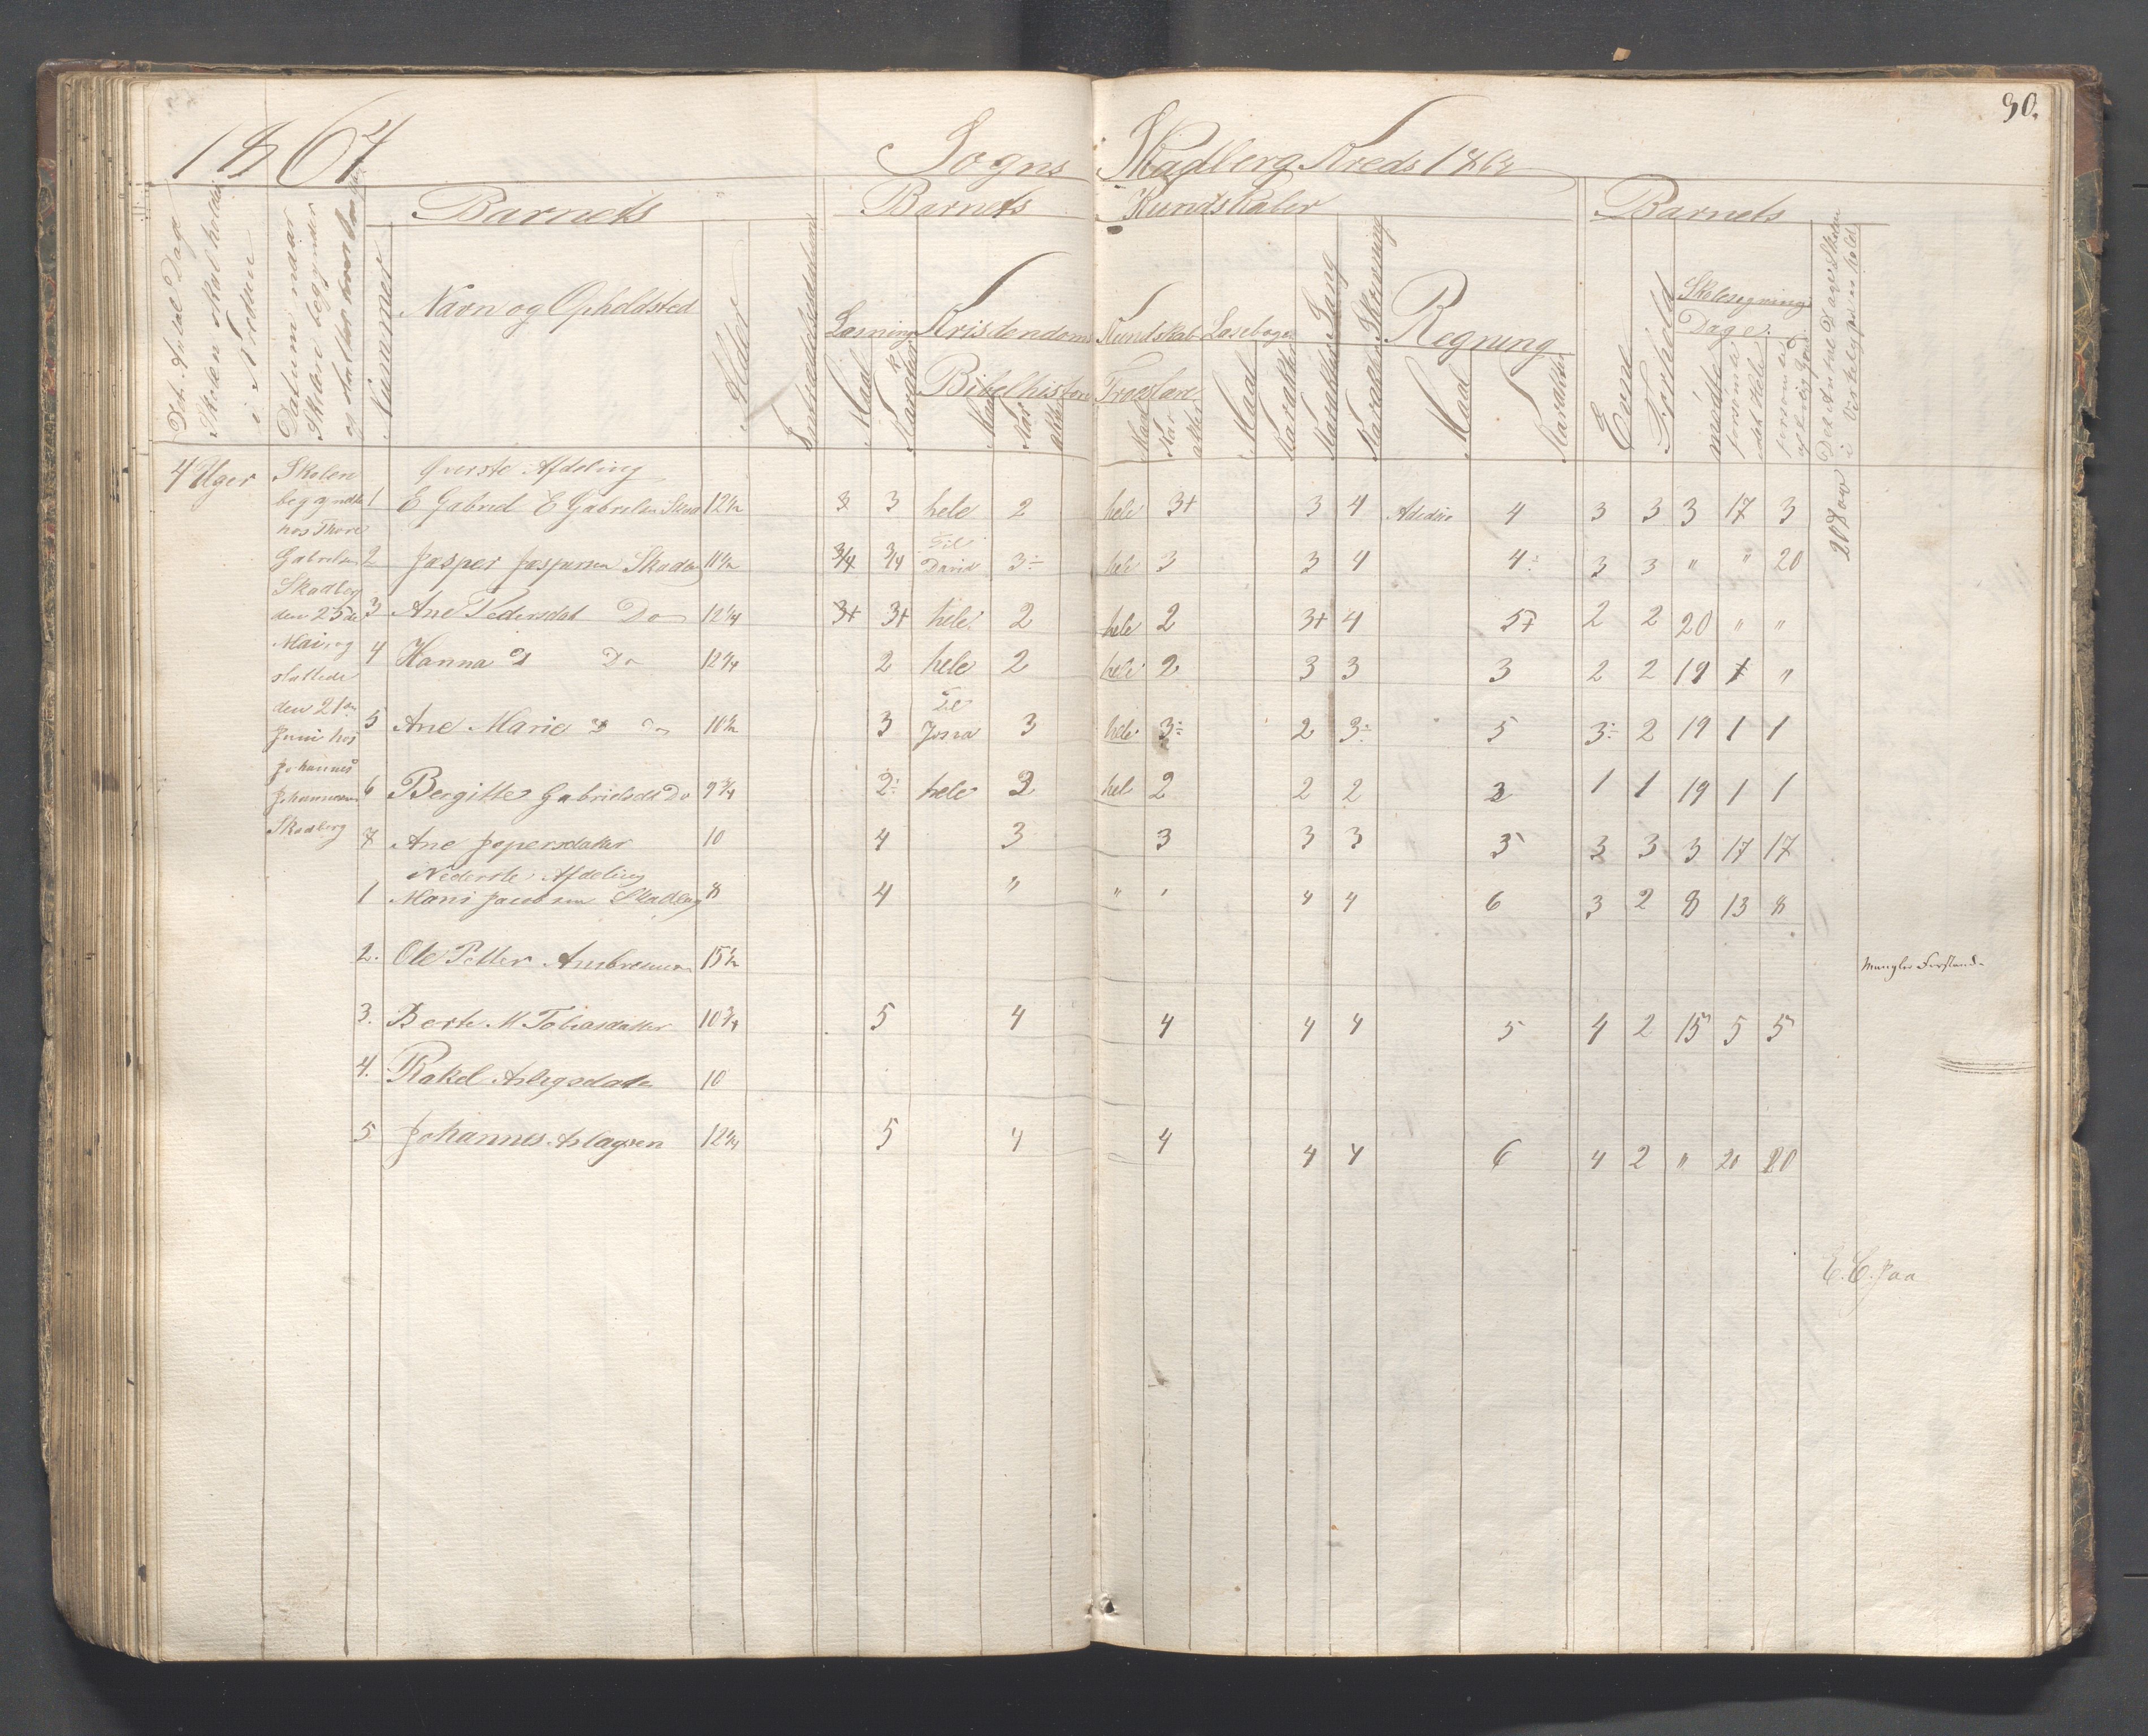 90.
1864
Sogns Skadberg Kreds 1864
Det Antal Dage Skolen skal holdes i Kredsen
Datum naar Skolen begynder og slutter
Nummer
Barnets
Navn og Opholdsted
Alder
Indtrædelsesdatum
Barnets Kundskaber
Læsning
Maal
Karakter
Kristendoms Kundskab
Bibelhistorie
Maal
Karakter
Troeslære
Maal
Karakter
Læsebogen
Maal
Karakter
Karakter Sang
Karakter Skrivning
Regning
Maal
Karakter
Barnets
Evne
Forhold
Skolesøgning
Dage
mødte
forsømte i det Hele
Det Antal Dage Skolen i Virkeligheden er holdt
4 Uger
Skolen
begyndte
hos Thore
Gabrielsen
Skadberg
den 25de
Mai og
sluttede
den 21de
Juni hos
Johannes
Johannesen
Skadberg
Øverste Afdeling
1 E Gabriel E Gabrielsen Skad 12 1/2 3 3 hele 2 hele 3+ 3 4 4 3 3 3 17 3 20
2 Jasper Jaspersen Skadb 11 1/2 3/4 3/4 Til David 3÷ hele 3 3 4 4÷ 3 3 " " 20
3 Ane Pedersdat Do 12 1/4 3+ 3+ hele 2 hele 2 3+ 4 5+ 2 2 20 " "
4 Hanna Do 12 1/4 2 hele 2 hele 2 3 3 3 2 2 19 1 "
5 Ane Marie Do 10 1/2 3 Til Josva 3 hele 3÷ 2 3÷ 5 3÷ 2 19 1 1
6 Bergitte Gabrielsdt Do 9 3/4 2÷ hele 2 hele 2 2 2 3 1 1 19 1 1
7 Ane Jespersdatter 10 4 3 3 3 3 5 3 3 3 17 17
Nederste Afdeling
1 Mari Jacobsen Skadberg 8 4 " " " 4 4 6 3 2 8 13 8
2. Ole Petter Ambrosen 15 1/2 Mangler Forstand
3. Berte M Tobiasdatter 10 3/4 5 4 4 4 4 5 4 2 15 5 5
4. Rakel Aslagsdatter 10
5 Johannes Aslagsen 12 1/4 5 4 4 4 4 6 4 2 " 20 20
E. C. Jaa